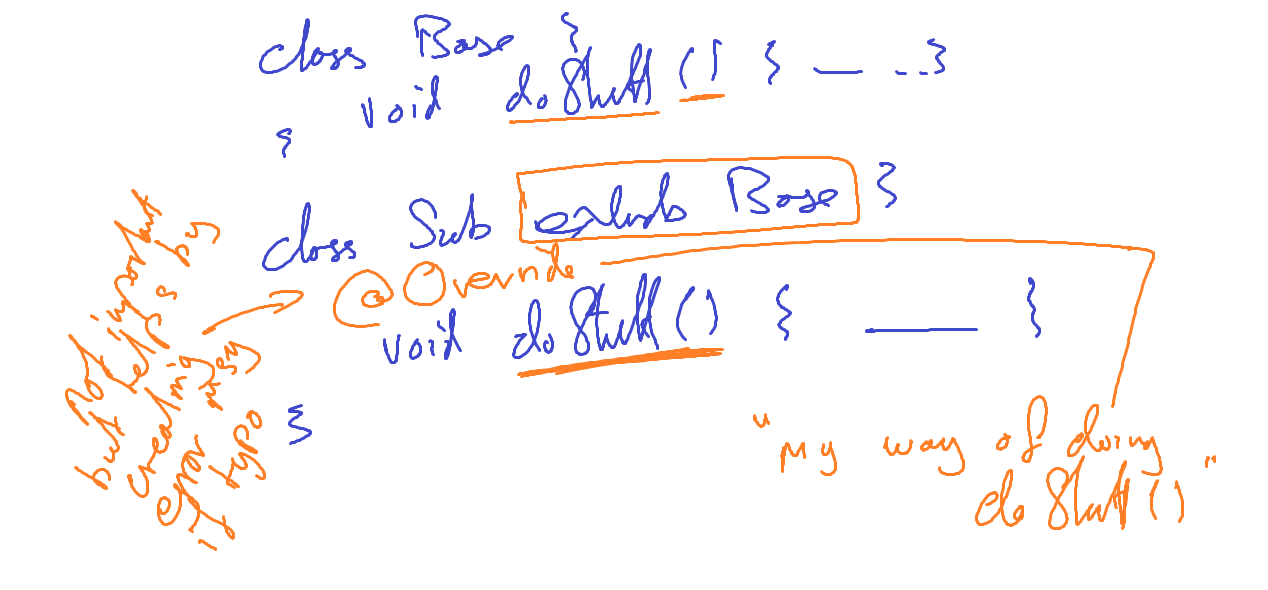 class Base {
void doStuff () { — ..}
}
class Sub extends Base {
@Override
void doStuff () { — }
}
Not important
but helps by
creating
error msg
if typo
"My way of doing
do Stuff ()"